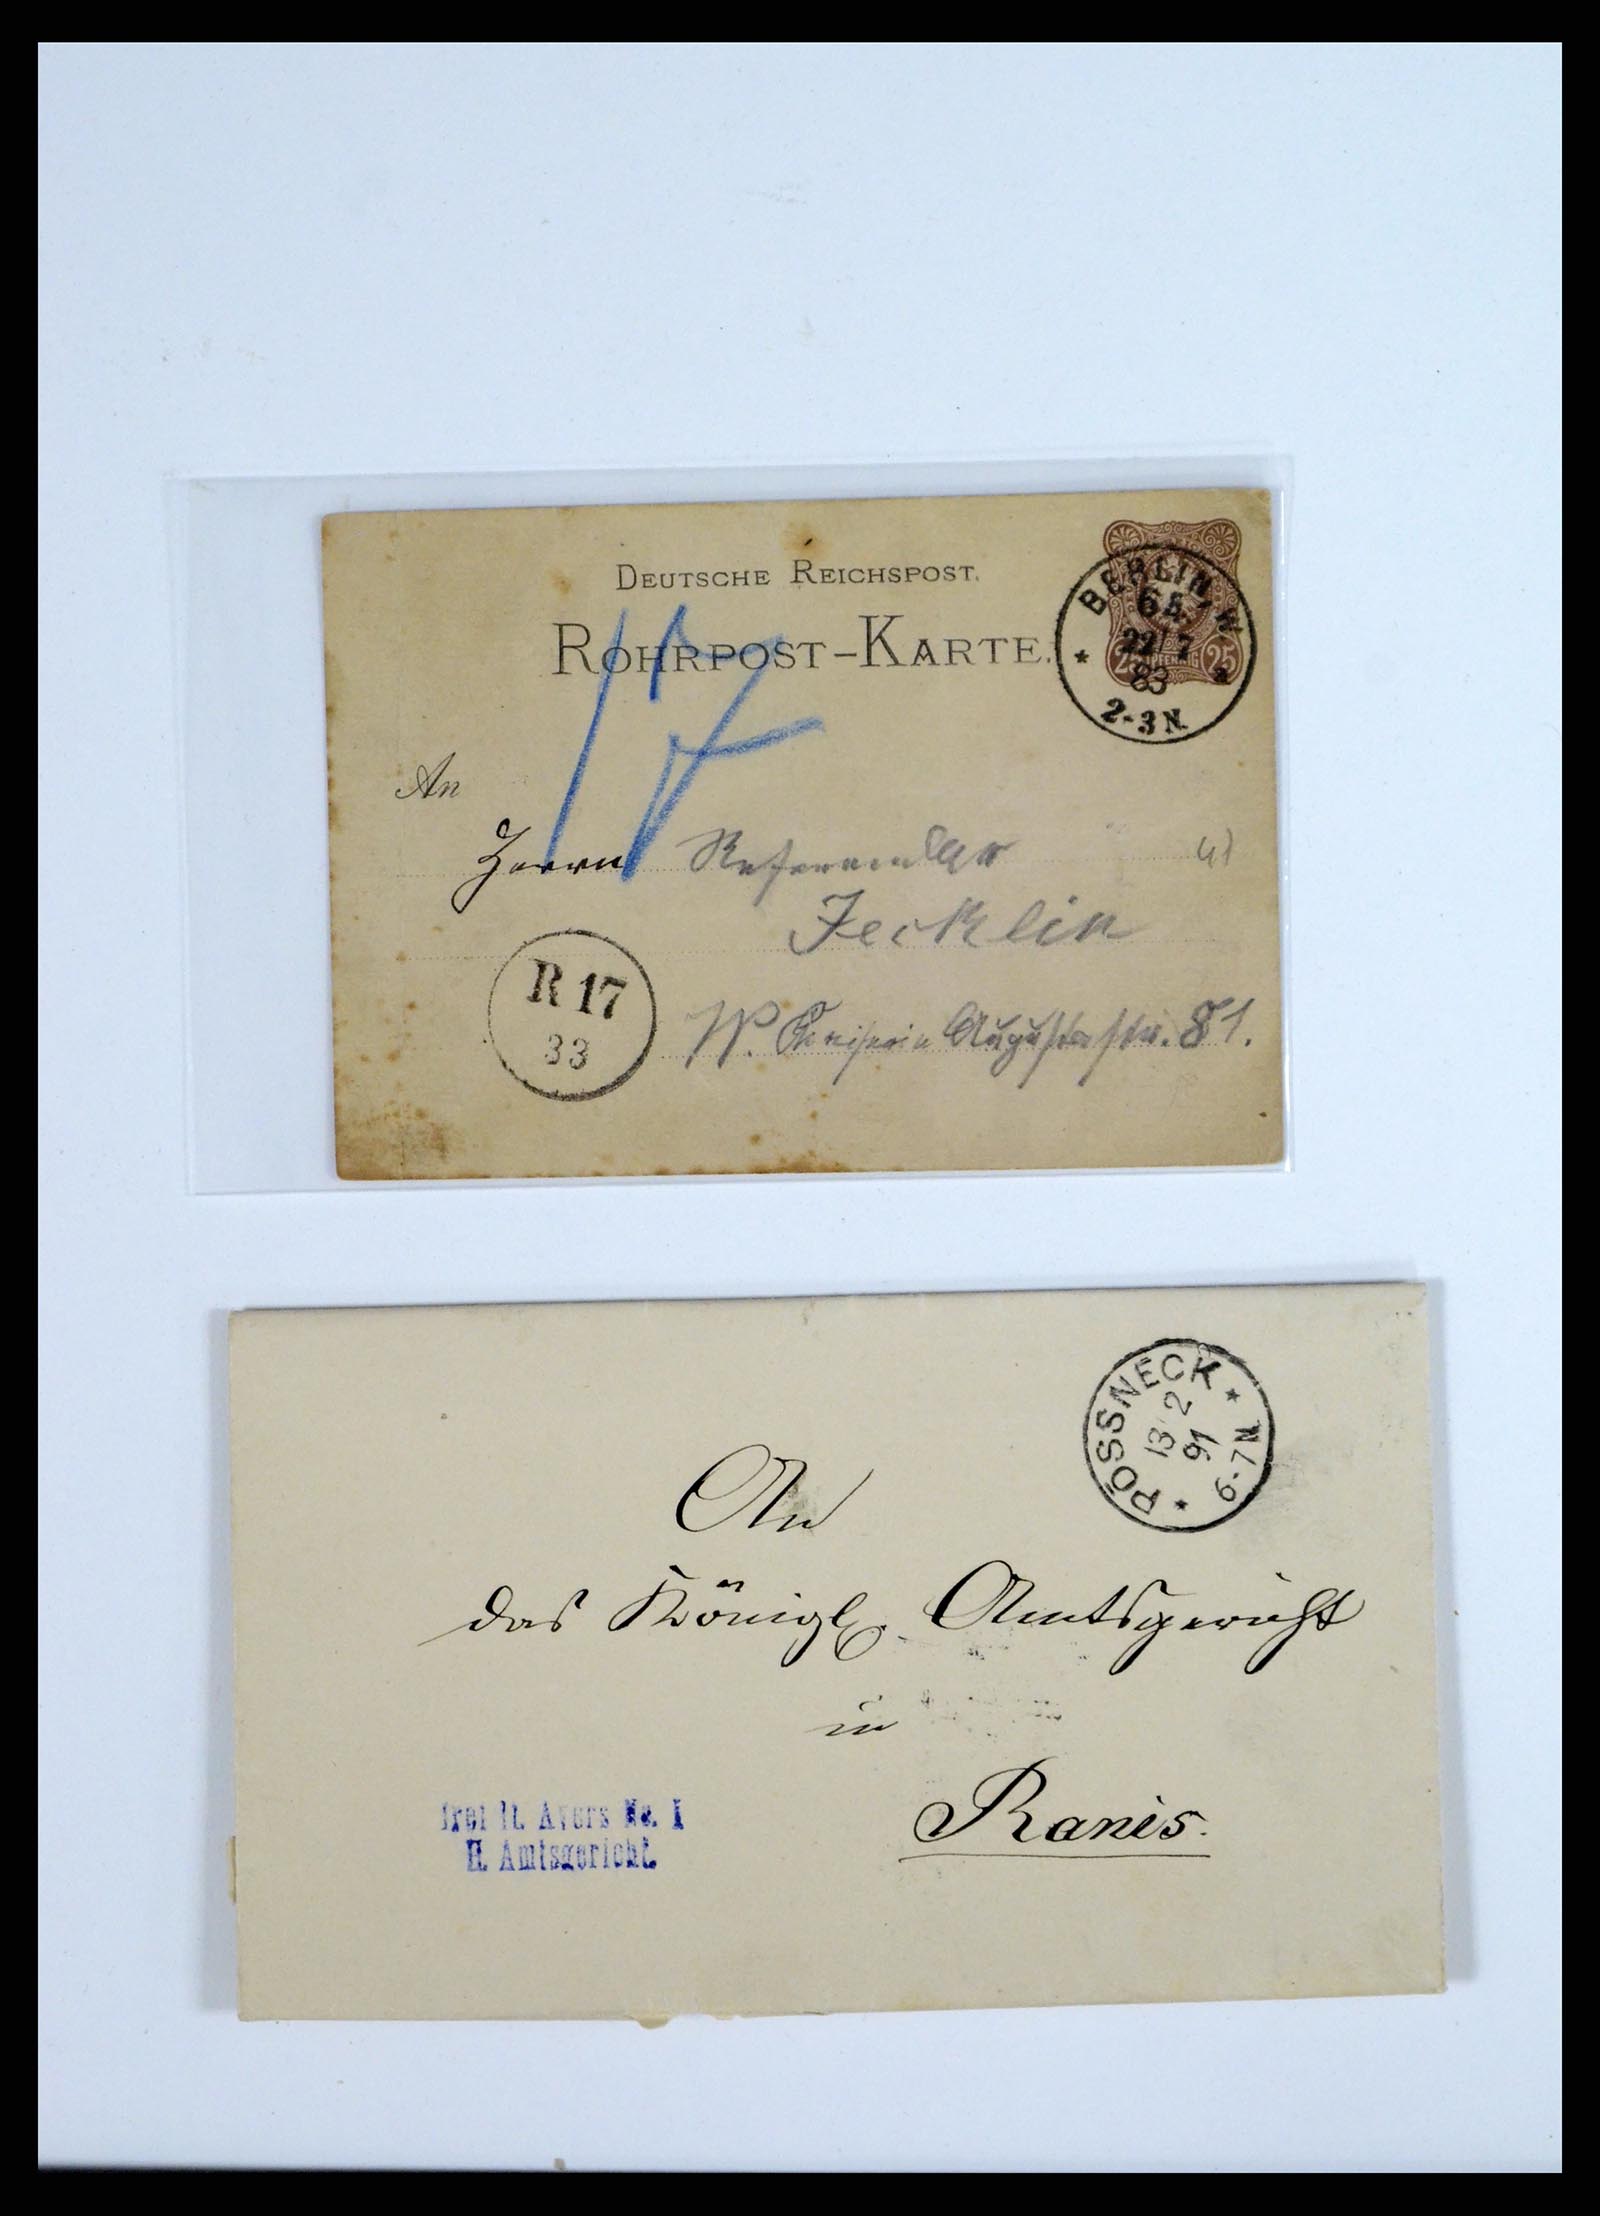 DEUTSCHE REICHSPOST.
ROHRPOST-KARTE.
25 PFENNIG 25
BERLIN, W.
22/7
83
2-3N.
An
Herrn Referendar
Jecklin
W. Kaiserin Augustastr. 81.
R 17
33
PÖSSNECK
13 2
91
6-7N
An
das Königl. Amtsgericht
in
Ranis.
frei lt. Avers No. 1
H. Amtsgericht.